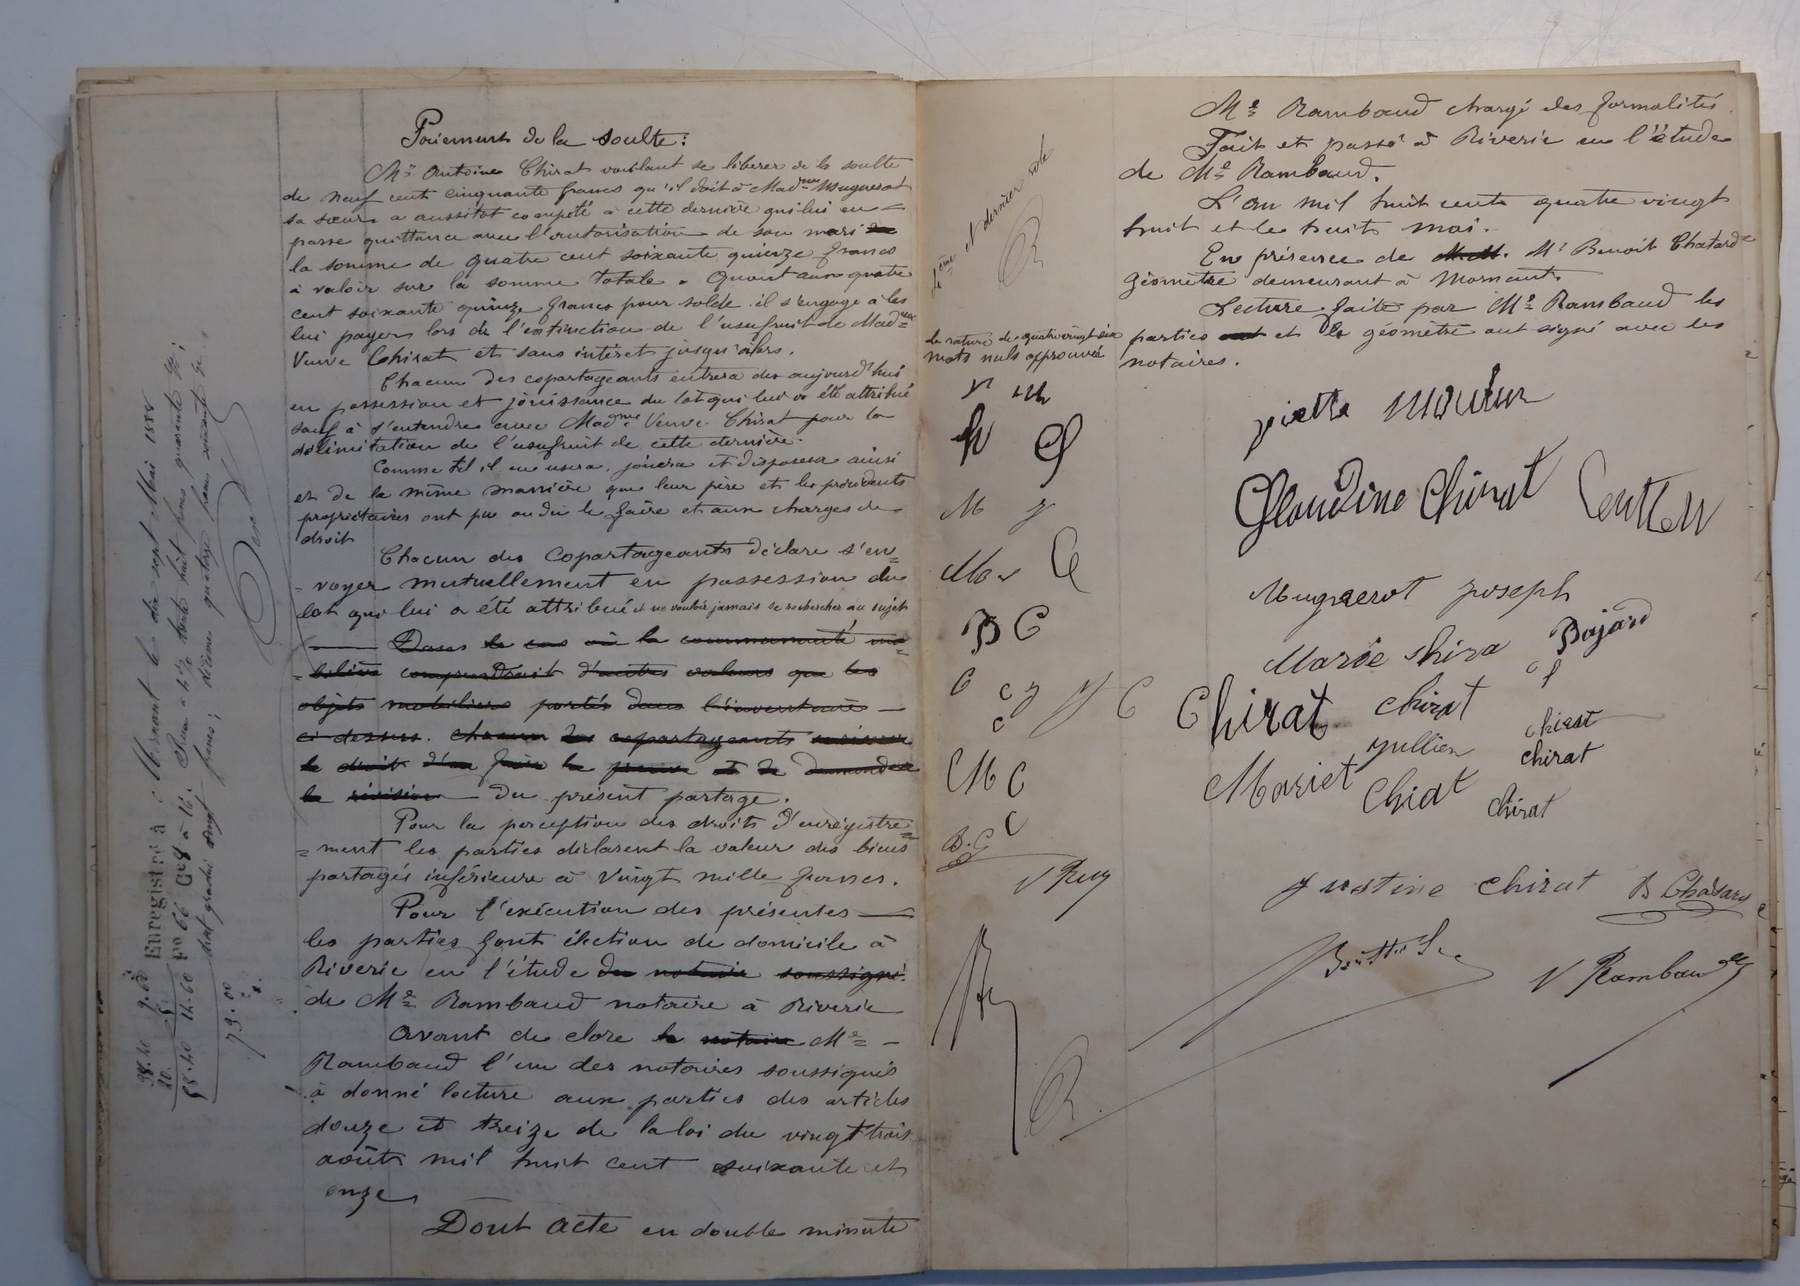 Paiement de la soulte:
Mr Antoine Chirat voulant se libérer de la soulte
de neuf cent cinquante francs qu'il doit à Madme Muguerot
sa sœur a aussitôt compté à cette dernière qui lui en
passe quittance avec l'autorisation de son mari
la somme de quatre cent soixante quinze francs
à valoir sur la somme totale. Quant aux quatre
cent soixante quinze francs pour solde il s'engage à les
lui payer lors de l'extinction de l'usufruit de Madme
Veuve Chirat et sans intérêt jusqu'alors.
Chacun des copartageants entrera dès aujourd'hui
en possession et jouissance du lot qui lui a été attribué
sauf à s'entendre avec Madme Veuve Chirat pour la
délimitation de l'usufruit de cette dernière.
Comme tel il en usera, jouira et disposera ainsi
et de la même manière que leur père et les précédents
propriétaires ont pu ou dû le faire et aux charges de
droit
Chacun des copartageants déclare s'en=
=voyer mutuellement en possession du
lot qui lui a été attribué et ne vouloir jamais se rechercher au sujet
Dans le cas où la communauté mo=
=bilière comprendrait d'autres valeurs que les
objets mobiliers portés dans l'inventaire
ci dessus. chacun des copartageants
le droit d'en faire la preuve et de demander
la révision du présent partage.
Pour la perception des droits d'enregistre=
=ment les parties déclarent la valeur des biens
partagés inférieure à vingt mille francs.
Pour l'exécution des présentes
les parties font élection de domicile à
Riverie en l'étude du notaire soussigné.
de Me Rambaud notaire à Riverie
Avant de clore le notaire Me
Rambaud l'un des notaires soussignés
à donné lecture aux parties des articles
douze et treize de la loi du vingt trois
août mil huit cent soixante et
onze
Dont acte en double minute
Enregistré à Mornant le dix sept Mai 1888
Fo 66 Ce 8 à 16.
francs; décime quatorze francs soixante
38.40
20.
58.40
14.60
73.00
et dernier rôle
R
Me Rambaud chargé des formalités
Fait et passé à Riverie en l'étude
de Me Rambaud.
L'an mil huit cent quatre vingt
huit et le huit mai.
En présence de Mr Benoit Chatard
géomètre demeurant à Mornant.
Lecture faite par Me Rambaud les
parties et le géomètre ont signé avec les
notaires.
La rature de quatre vingt six
mots nuls approuvée
Claudine Chirat
Muguerot joseph
Marie Chira
Bajard
Chirat
chirat
chirat
jullien
chirat
Mariet
Chirat
chirat
Justine chirat
B Chatard
V Rambaud
M
B C
M C
B.C
V Ray
R